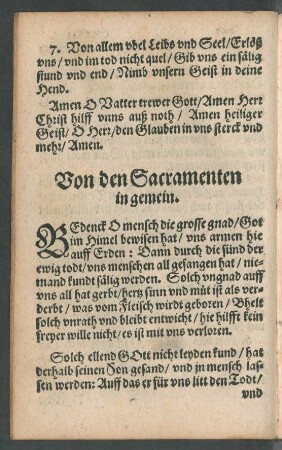 7. Von allem vbel Leibs vnd Seel/Erlöß
vns/vnd im tod nicht quel/Gib vns ein sälig
stund vnd end/Nimb vnsern Geist in deine
Hend.
Amen O Vatter trewer Gott/Amen Herr
Christ hilff vnns auß noth/Amen heiliger
Geist/O Herr/den Glauben in vns sterck vnd
mehr/Amen.
Von den Sacramenten
in gemein.
BEdenck O mensch die grosse gnad/Got
im Himel bewisen hat/vns armen hie
auff Erden: Dann durch die sünd der
ewig todt/vns menschen all gefangen hat/nie-
mand kundt sälig werden. Solch vngnad auff
vns all hat gerbt/hertz sinn vnd müt ist als ver-
derbt/was vom Fleisch wirdt geboren/Vbelt
solch vnrath vnd bleibt entwicht/hie hilfft kein
freyer wille nicht/es ist mit vns verloren.
Solch ellend GOtt nicht leyden kund/hat
derhalb seinen Son gesand/vnd in mensch las-
sen werden: Auff das er für vns litt den Todt/
vnd